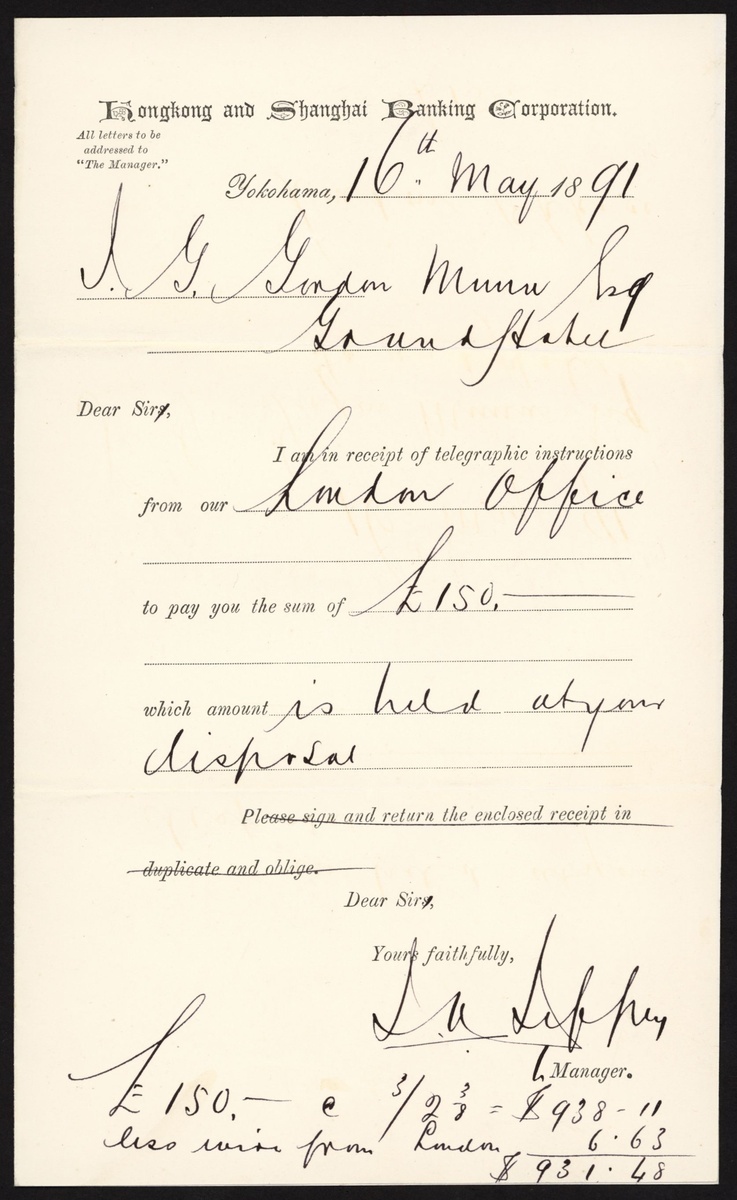 Hongkong and Shanghai Banking Corporation.
All letters to be
addressed to
"The Manager."
Yokohama, 16th May 1891
G. Gordon Munn Esq
Grand Hotel
Dear Sirs,
I am in receipt of telegraphic instructions
from our London Office
to pay you the sum of £150.—
which amount is held at your
disposal
Please sign and return the enclosed receipt in
duplicate and oblige.
Dear Sirs,
Yours faithfully,
Manager.
£150.— @ 3/2 3/8 = $938-11
less wire from London 6.63
$931.48